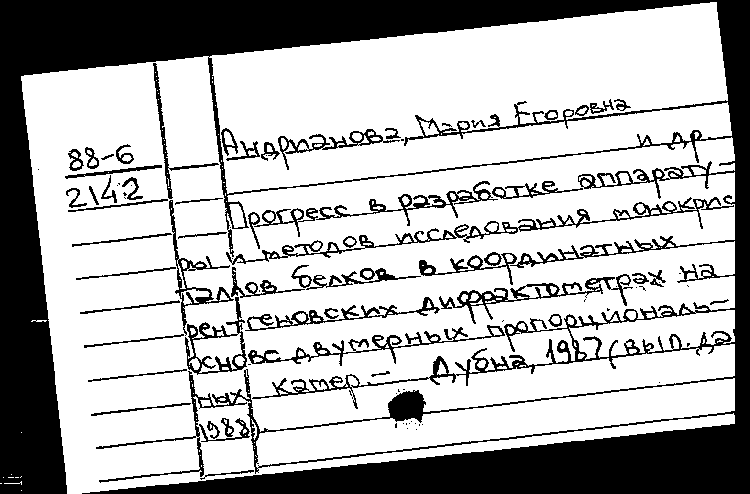 88-6
2142
Андрианова, Мария Егоровна
и др.
Прогресс в разработке аппарату-
ры и методов исследования монокрис
таллов белков в координатных
рентгеновских дифрактометрах на
основе двумерных пропорциональ-
ных камер.- Дубна, 1987 (вып. да
1988).